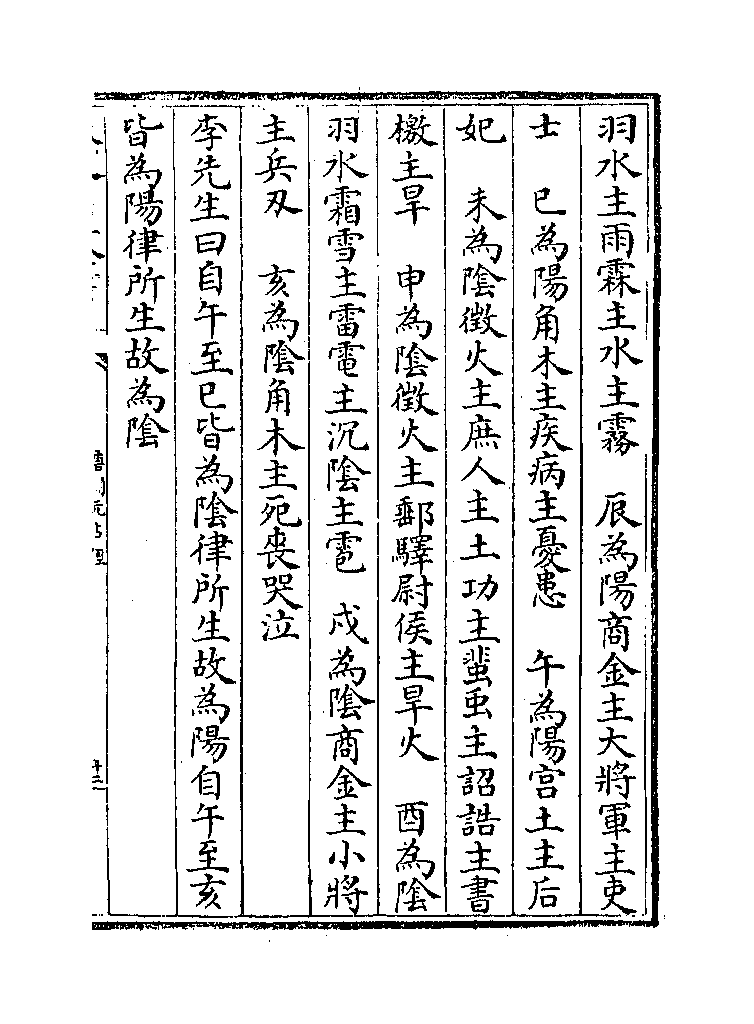 羽水主雨霖主水主霧　辰為陽商金主大將軍主吏
士　巳為陽角木主疾病主憂患　午為陽宮土主后
妃　未為陰徵火主庶人主土功主蜚虫主詔誥主書
檄主旱　申為陰徵火主郵驛尉侯主旱火　酉為陰
羽水霜雪主雷電主沉陰主雹　戍為陰商金主小將
主兵刃　亥為陰角木主死喪哭泣
李先生曰自午至巳皆為陰律所生故為陽自午至亥
皆為陽律所生故為陰